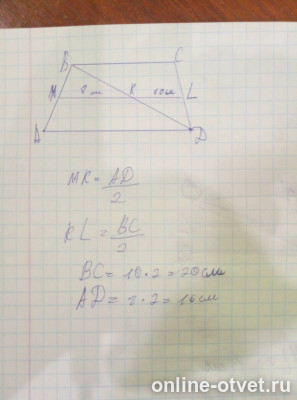 B C
M 8 см K 10 см L
A D
MK = AD/2
KL = BC/2
BC = 10 · 2 = 20 см
AD = 8 · 2 = 16 см
online-otvet.ru